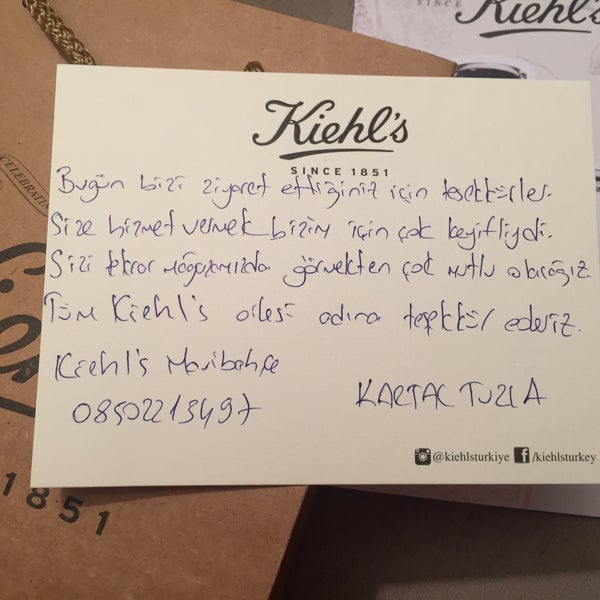 SINCE
Kiehl's
CELEBRATIN
Kiehl's
SINCE 1851
Bugün bizi ziyaret ettiğiniz için teşekkürler.
Size hizmet vermek bizim için çok keyifliydi.
Sizi tekrar mağazamızda görmekten çok mutlu olacağız
Tüm Kiehl's ailesi adına teşekkür ederiz.
Kiehl's Mavibahçe
08502213497
KARTAL TUZLA
@kiehlsturkiye /kiehlsturkey
1851